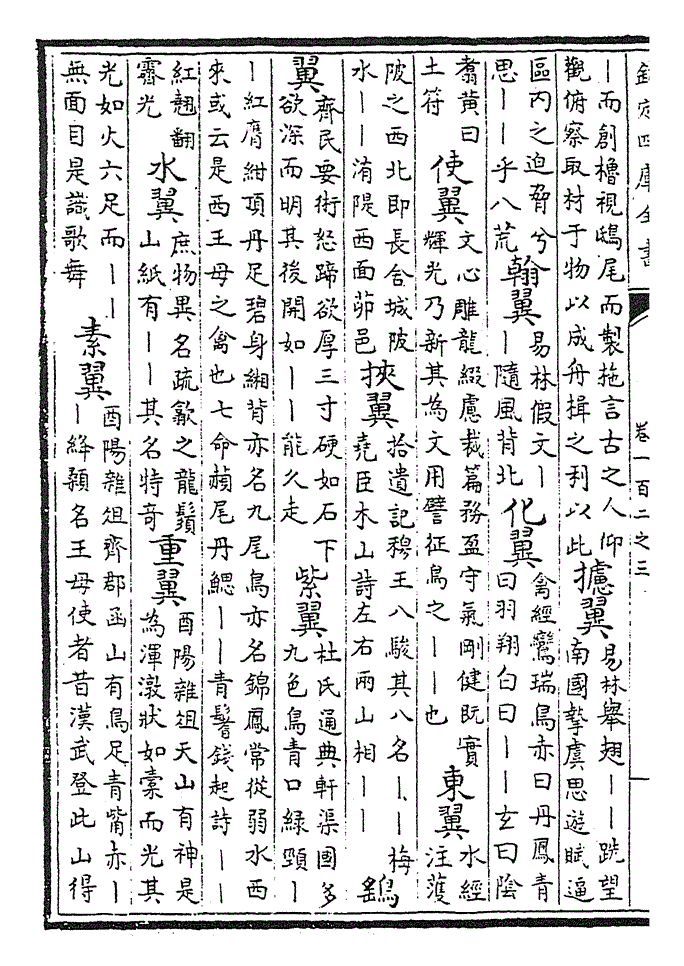 欽定四庫全書
卷一百二之三
一
丨而創櫓視鴟尾而製拖言古之人仰
觀俯察取材于物以成舟楫之利以此
攄翼
易林舉翅丨丨跣望
南國摯虞思遊賦逼
區内之迫脅兮
思丨丨乎八荒
翰翼
易林假文丨
丨隨風背北
化翼
禽經鸞瑞鳥亦曰丹鳳青
曰羽翔白曰丨丨玄曰陰
翥黄曰
土符
使翼
文心雕龍綴慮裁篇務盈守氣剛健既實
輝光乃新其為文用譬征鳥之丨丨也
東翼
水經
注蒦
陂之西北即長舍城陂
水丨丨洧隄西面茆邑
挾翼
拾遺記穆王八駿其八名丨丨梅
堯臣木山詩左右兩山相丨丨
鷂
翼
齊民要術怒蹄欲厚三寸硬如石下
欲深而明其後開如丨丨能久走
紫翼
杜氏通典軒渠國多
九色鳥青口緑頸丨
丨紅膺紺頂丹足碧身緗背亦名九尾鳥亦名錦鳳常從弱水西
來或云是西王母之禽也七命赬尾丹鰓丨丨青鬐錢起詩丨丨
紅翹翻
霽光
水翼
庶物異名疏歙之龍鬚
山紙有丨丨其名特奇
重翼
酉陽雜俎天山有神是
為渾潡狀如橐而光其
光如火六足而丨丨
無面目是識歌舞
素翼
酉陽雜俎齊郡函山有鳥足青觜赤丨
丨絳顙名王母使者昔漢武登此山得